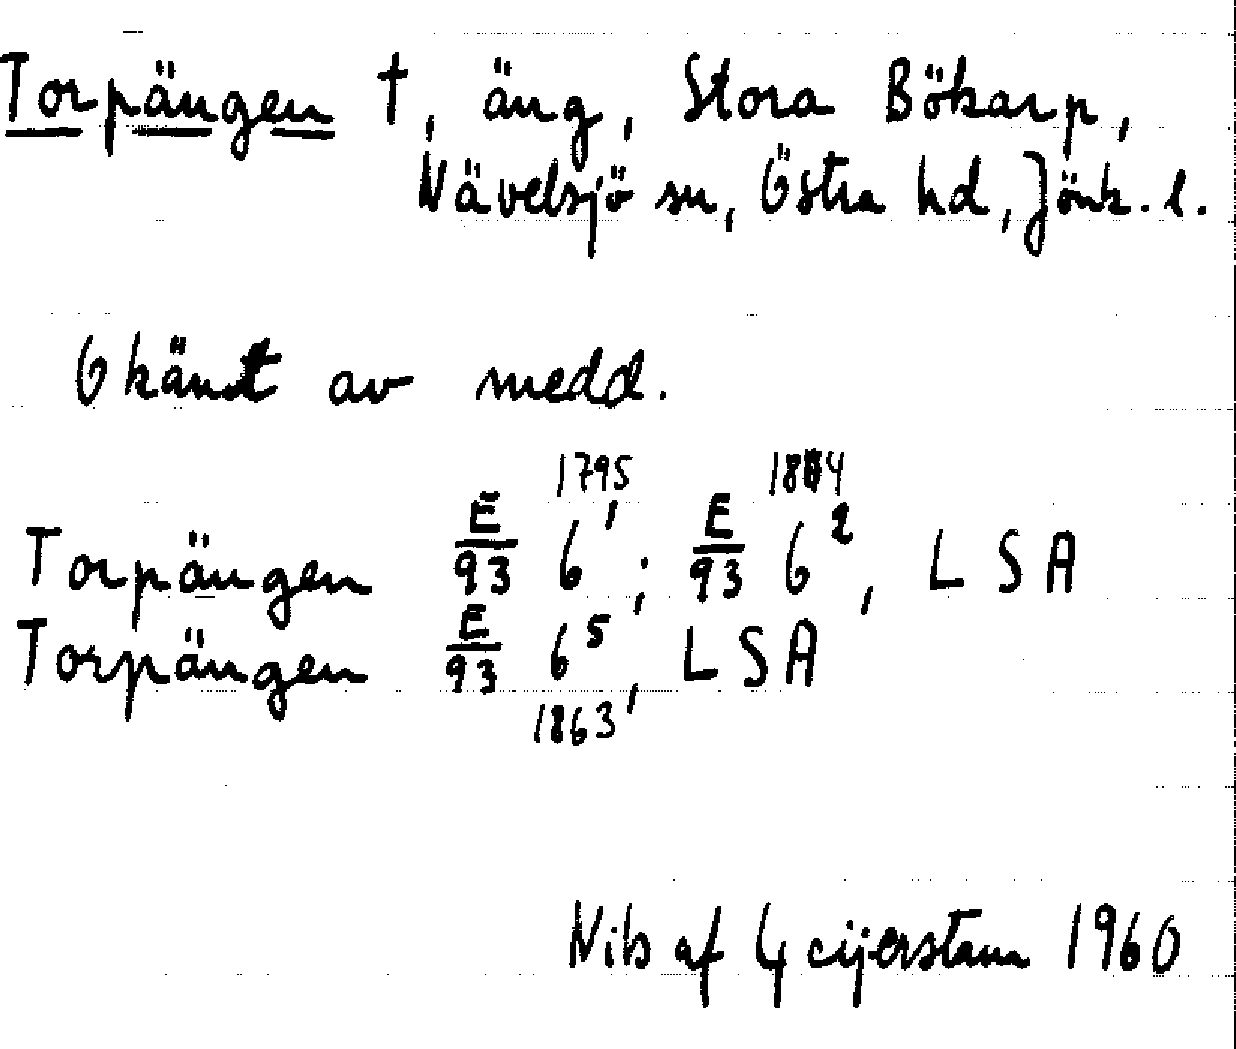 Torpängen †, äng, Stora Bökarp,
Nävelsjö sn, Östra hd, Jönk. l.
Okänt av medd.
1795 1804
Torpängen E/93 6¹; E/93 6², LSA
Torpängen E/93 6⁵, LSA
1863
Nils af Geijerstam 1960